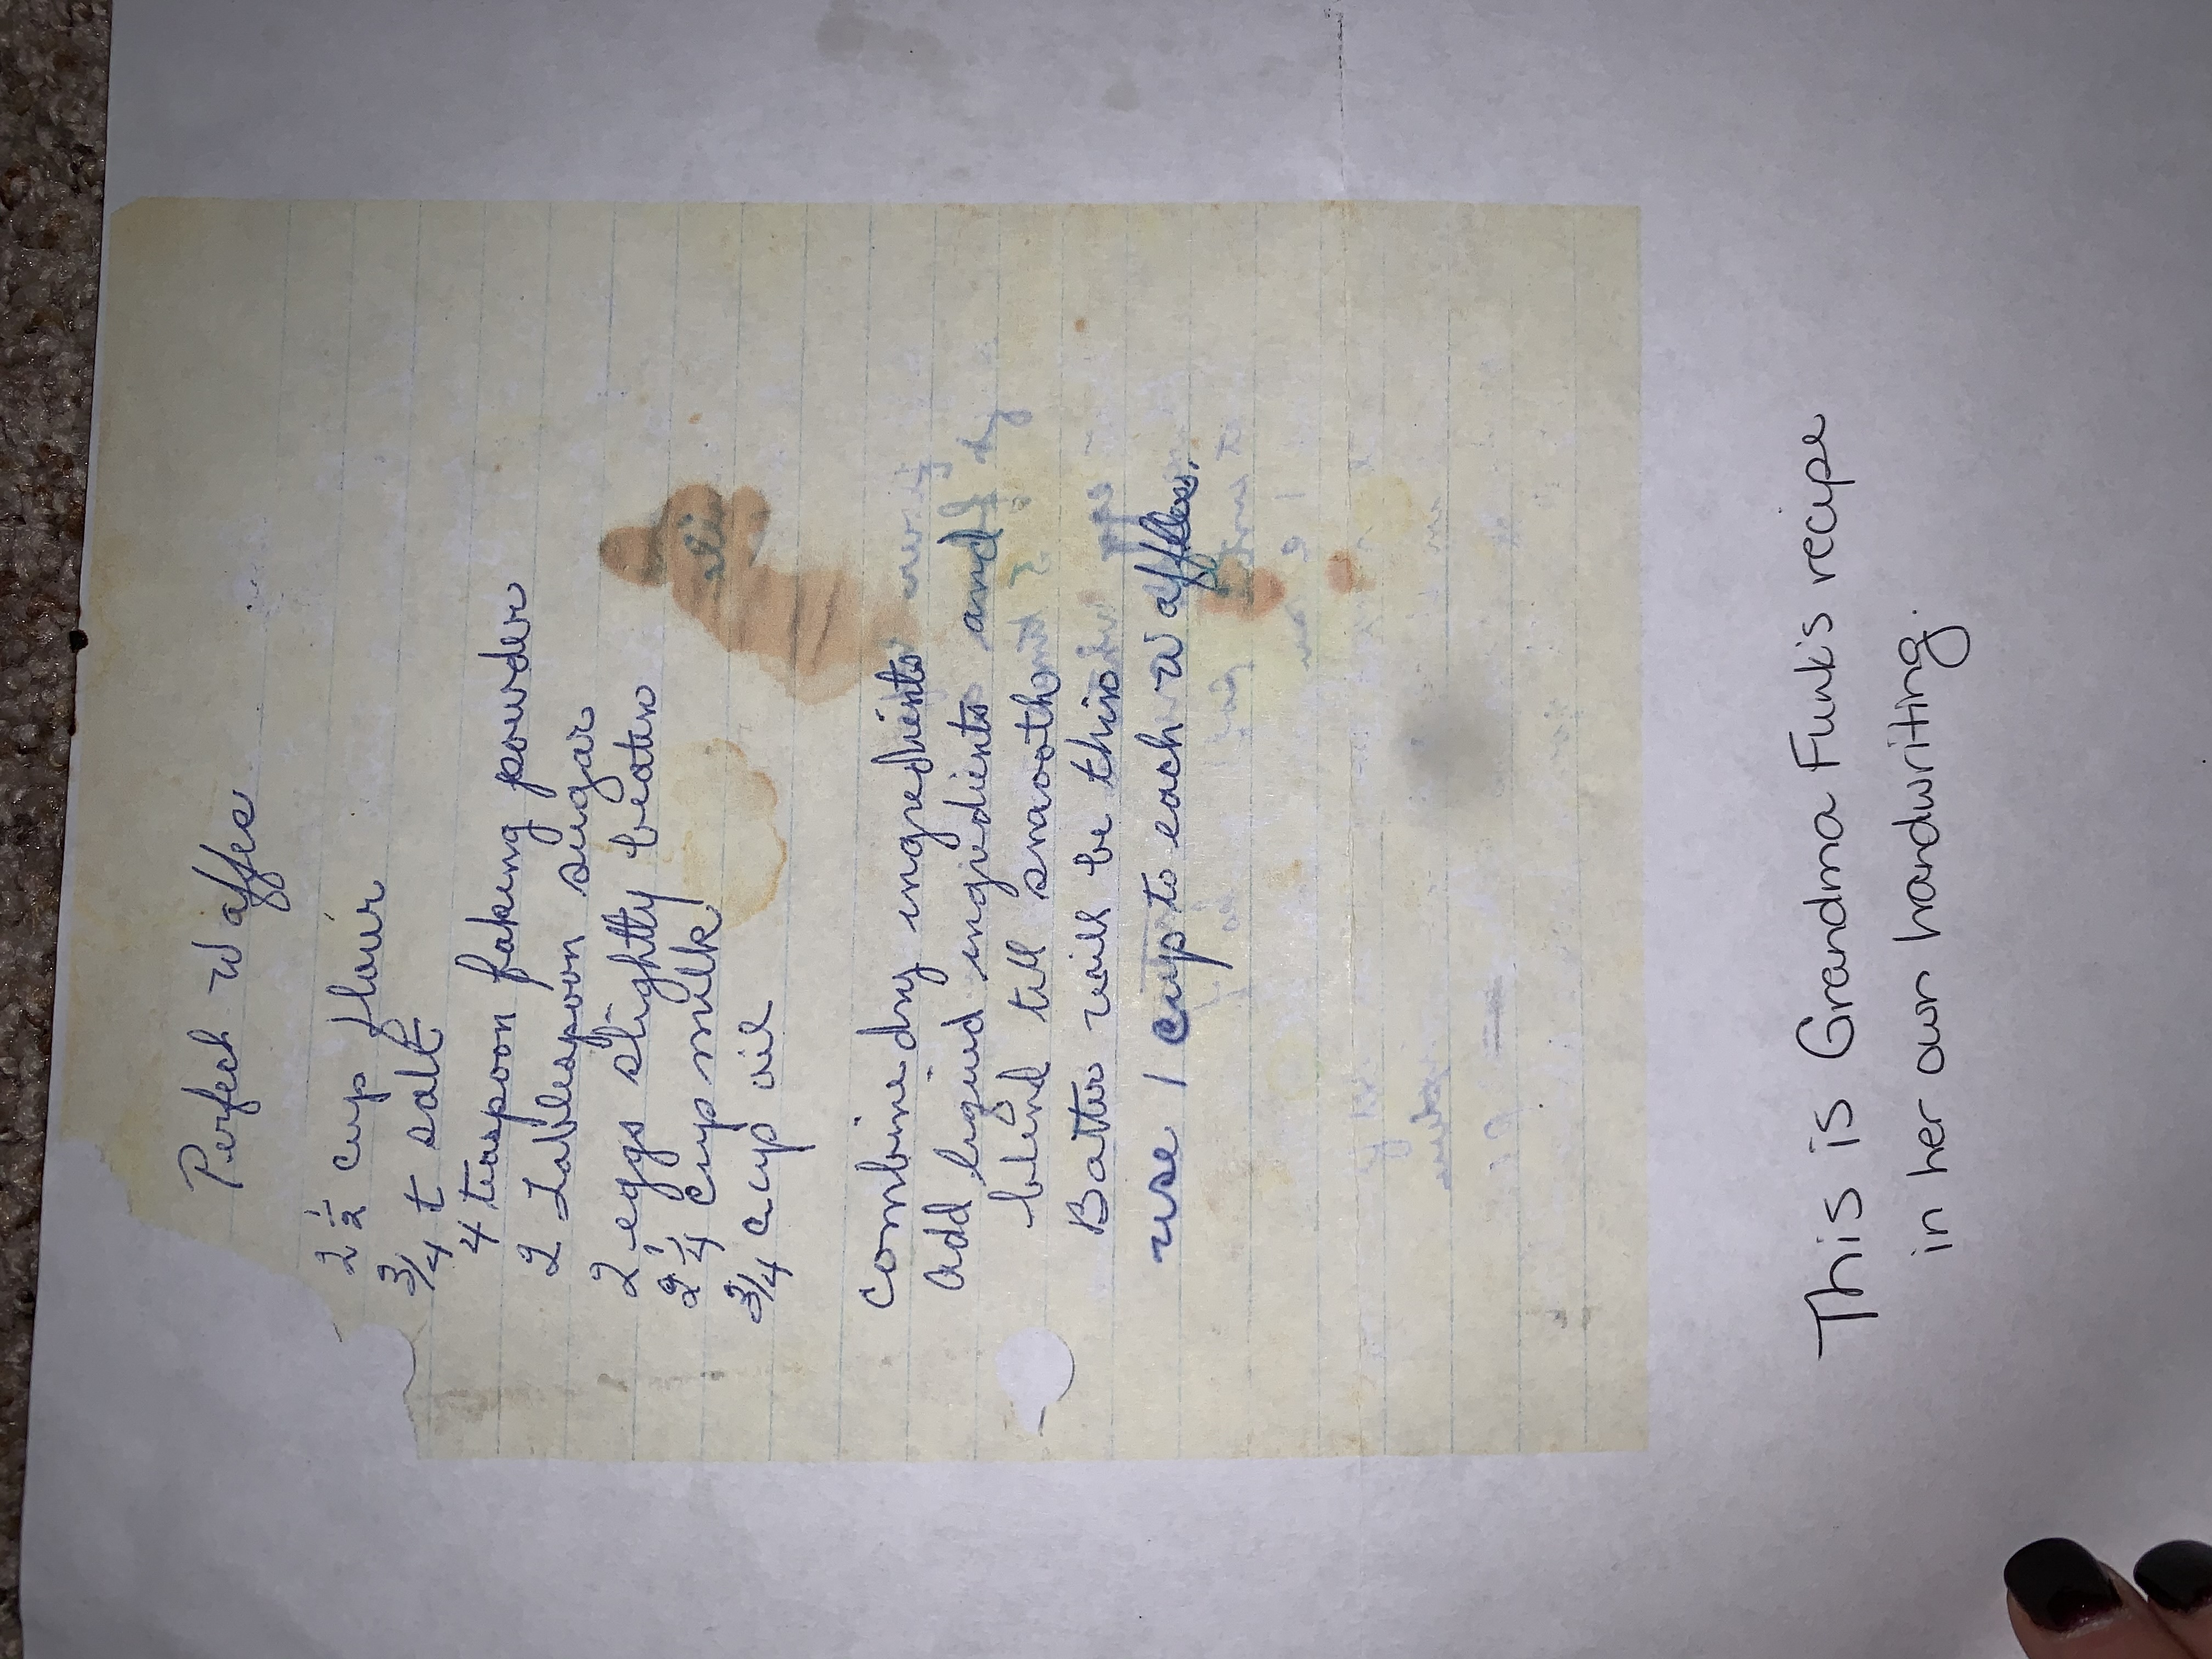 Perfect Waffes
2 1/2 cup flour
3/4 t salt
4 teaspoon baking powder
2 Tablespoon sugar
2 eggs slightly beaten
2 1/4 cup milk
3/4 cup oil
Combine dry ingredients
Add liquid ingredients and
blend till smooth
Batter will be thin
use 1 cup to each Waffles.
This is Grandma Funk's recipe
in her own handwriting.